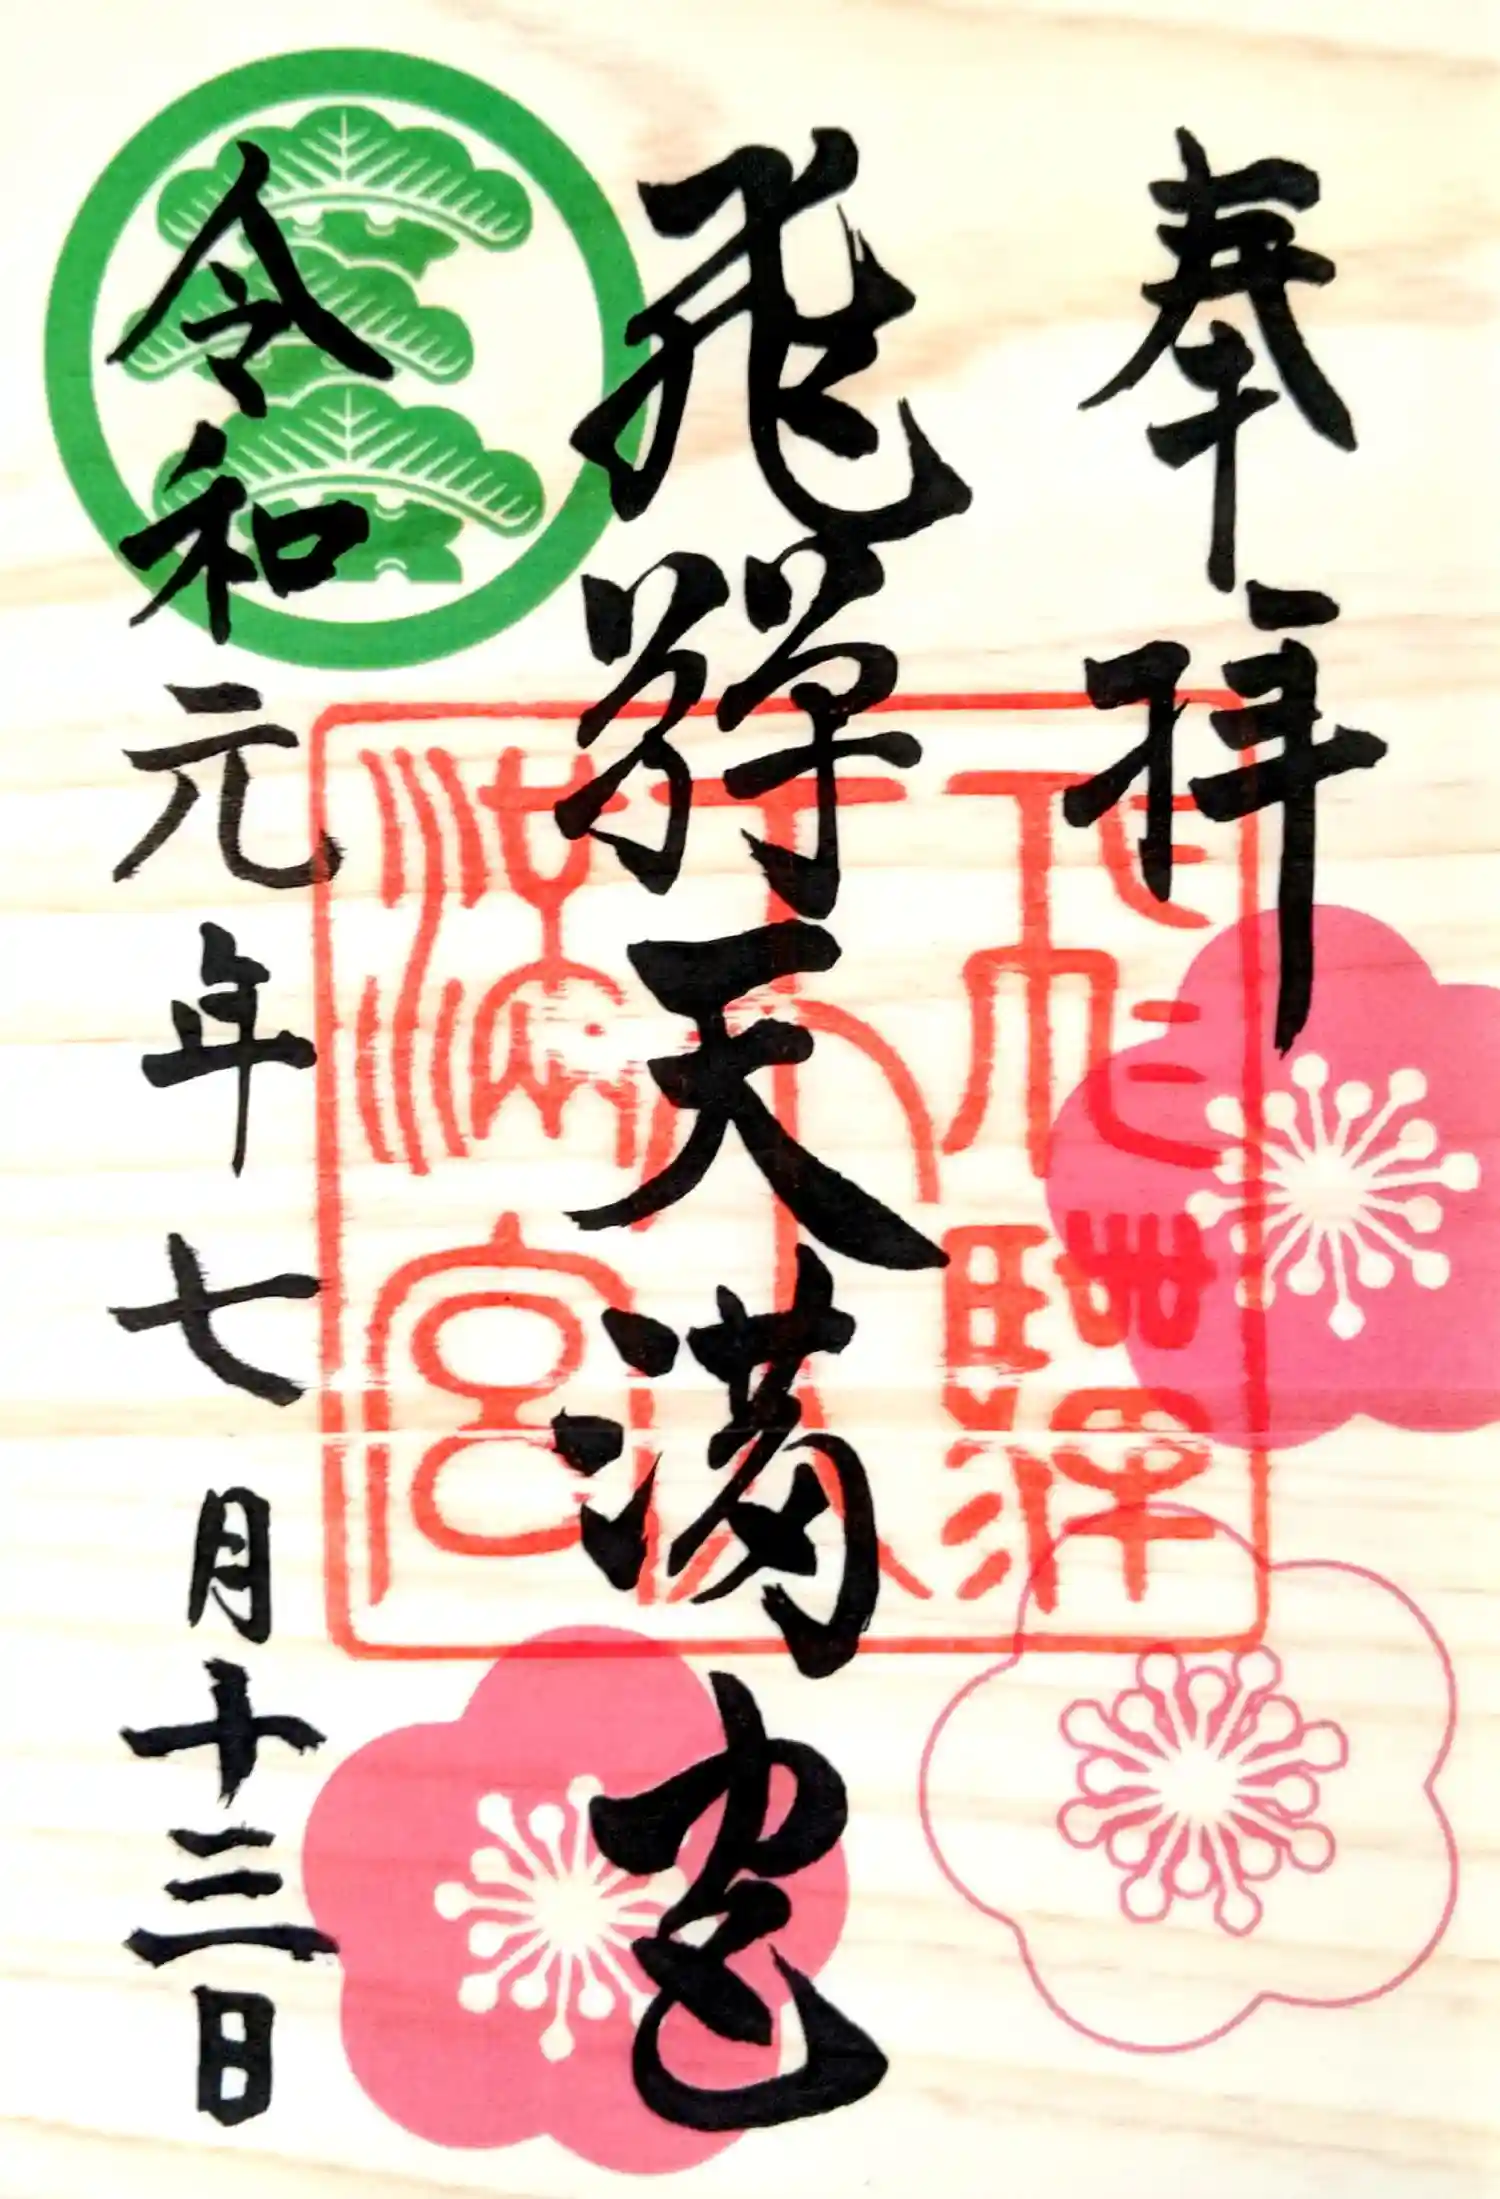 奉拝
飛騨天満宮
飛騨天満宮
令和元年七月十三日